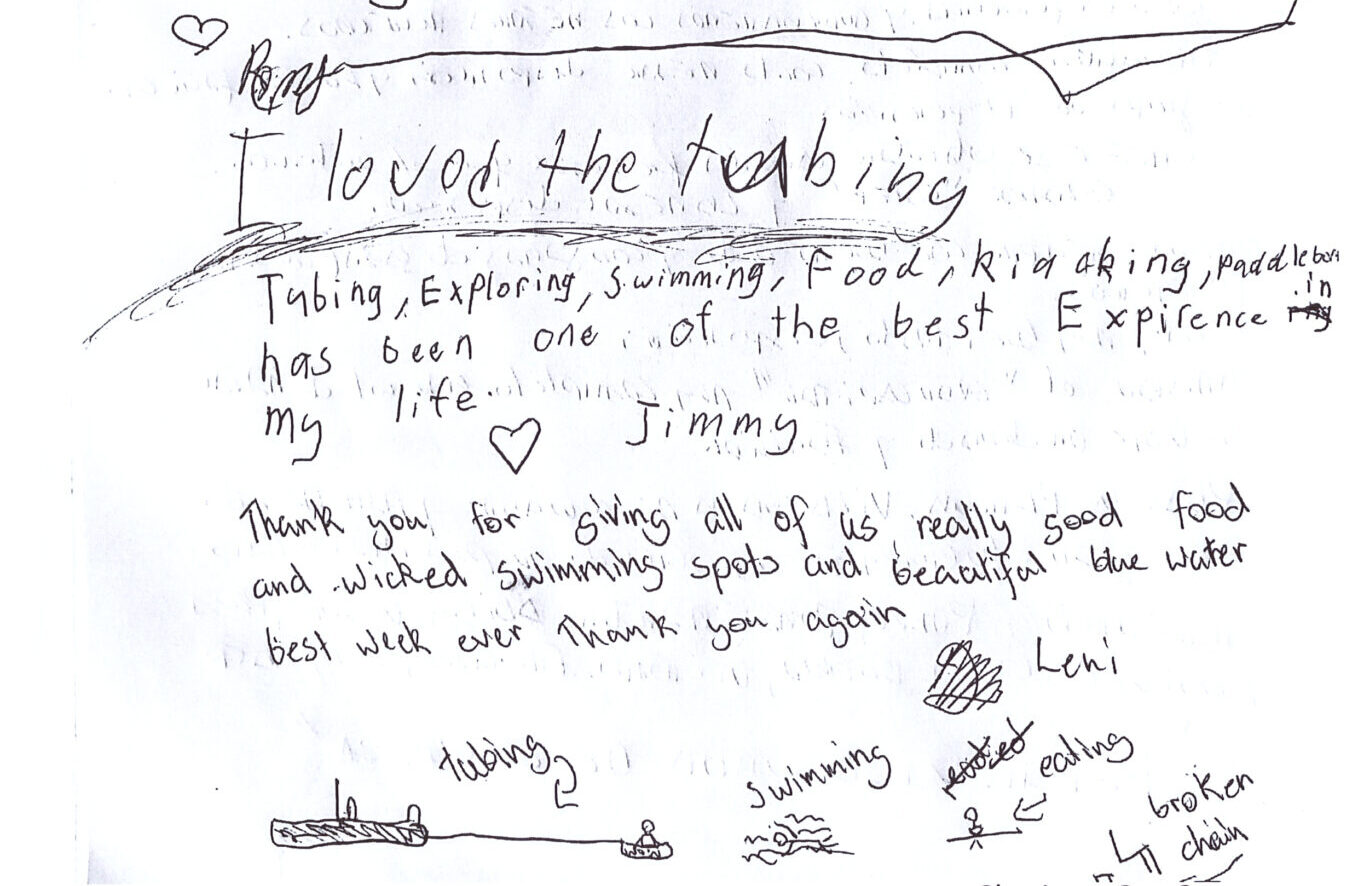 I loved the tubing
Tubing, Exploring, swimming, Food, kiaaking, paddlebor
has been one of the best Expirence in
my life.
Jimmy
Thank you for giving all of us really good food
and wicked swimming spots and beautiful blue water
best week ever Thank you again
Leni
tubing
swimming
eating
broken
chain